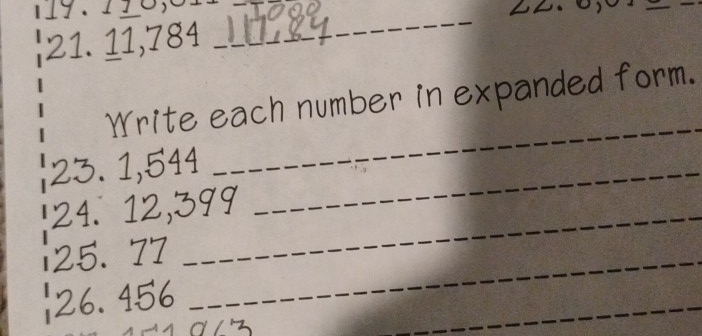 19.
21. 11,784
22.
Write each number in expanded form.
23. 1,544
24. 12,399
25. 77
26. 456